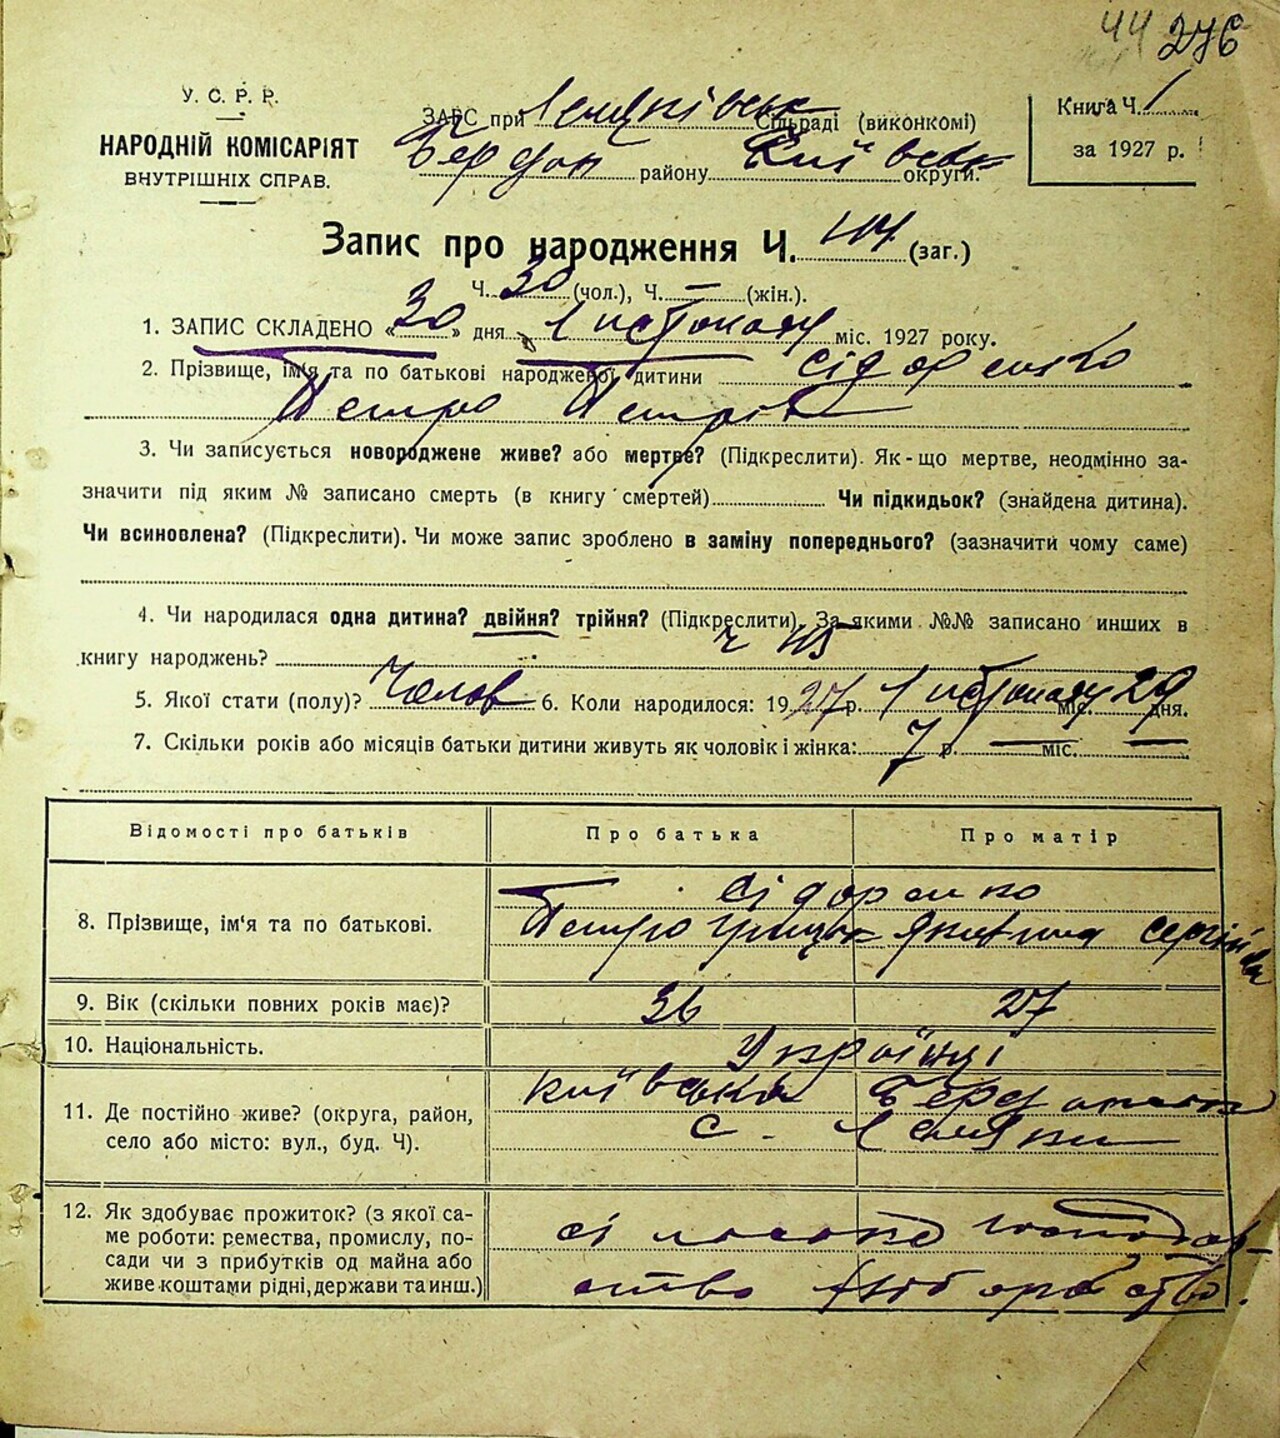 44 276
У. С. Р. Р.
НАРОДНІЙ КОМІСАРІЯТ
ВНУТРІШНІХ СПРАВ.
ЗАГС при Лемяківськ Сільраді (виконкомі)
району Київськ округи.
Книга Ч. 1
за 1927 р.
Запис про народження Ч. (заг.)
Ч. 30 (чол.), Ч. – (жін.).
1. ЗАПИС СКЛАДЕНО «30» дня Листопаду міс. 1927 року.
2. Прізвище, ім'я та по батькові народженої дитини Сідоренко
Петро Петрів
3. Чи записується новороджене живе? або мертве? (Підкреслити). Як-що мертве, неодмінно за-
значити під яким № записано смерть (в книгу смертей) Чи підкидьок? (знайдена дитина).
Чи всиновлена? (Підкреслити). Чи може запис зроблено в заміну попереднього? (зазначити чому саме)
4. Чи народилася одна дитина? двійня? трійня? (Підкреслити). За якими №№ записано инших в
книгу народжень? ч 115
5. Якої стати (полу)? Чолов 6. Коли народилося: 1927 р. Листопаду міс. 29 дня.
7. Скільки років або місяців батьки дитини живуть як чоловік і жінка: 7 р. — міс. —
Відомості про батьків Про батька Про матір
8. Прізвище, ім'я та по батькові. Сідоренко
Петро Грицьк Якилина Сергіївн
9. Вік (скільки повних років має)? 36 27
10. Національність. Українці
11. Де постійно живе? (округа, район, Київська
село або місто: вул., буд. Ч). с. Лемяки
12. Як здобуває прожиток? (з якої са-
ме роботи: ремества, промислу, по- сільське господар-
сади чи з прибутків од майна або
живе коштами рідні, держави та инш.) ство хліборобство.